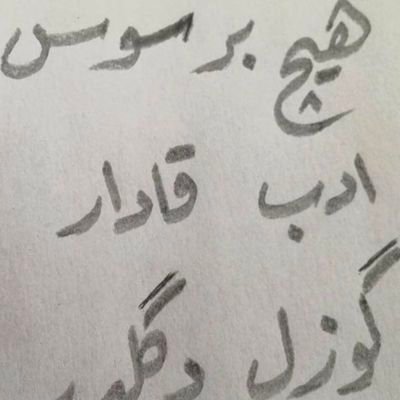 هیچ بر سوس
ادب قادار
گوزل دگلدر